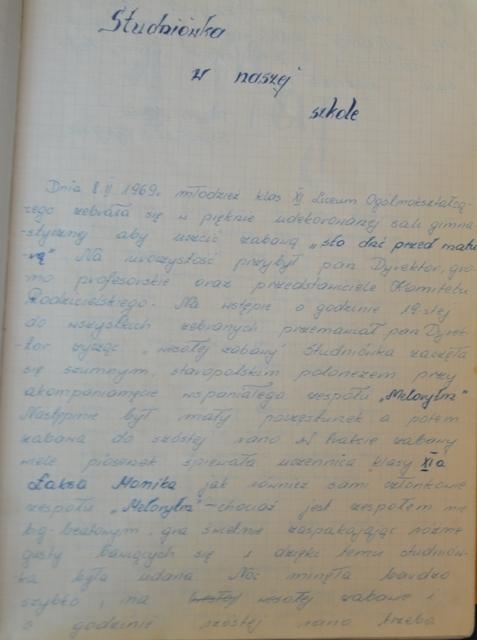 Studniówka
w naszej
szkole
Dnia 8.II 1969r. młodzież klas XI Liceum Ogólnokształcą-
cego zebrała się w pięknie udekorowanej sali gimna-
-stycznej aby uczcić zabawą „sto dni przed matu-
-rą" Na uroczystość przybył pan Dyrektor, gro-
no profesorskie oraz przedstawiciele Komitetu
Rodzicielskiego. Na wstępie o godzinie 19-stej
do wszystkich zebranych przemawiał pan Dyrek-
-tor życząc „wesołej zabawy" Studniówka zaczęła
się szumnym, staropolskim polonezem przy
akompaniamęcie wspaniałego zespołu „Melorytm"
Następnie był mały poczęstunek a potem
zabawa do szóstej rano W trakcie zabawy
wiele piosenek śpiewała uczennica klasy XIa
Łaksa Monika jak również sami członkowie
zespołu „Melorytm" - chociaż jest zespołem nie
big-beatowym, gra świetnie zaspakajając różne
gusty bawiących się i dzięki temu studniów-
-ka była udana Noc minęła bardzo
szybko, na wesołej zabawie i
o godzinie szóstej rano trzeba